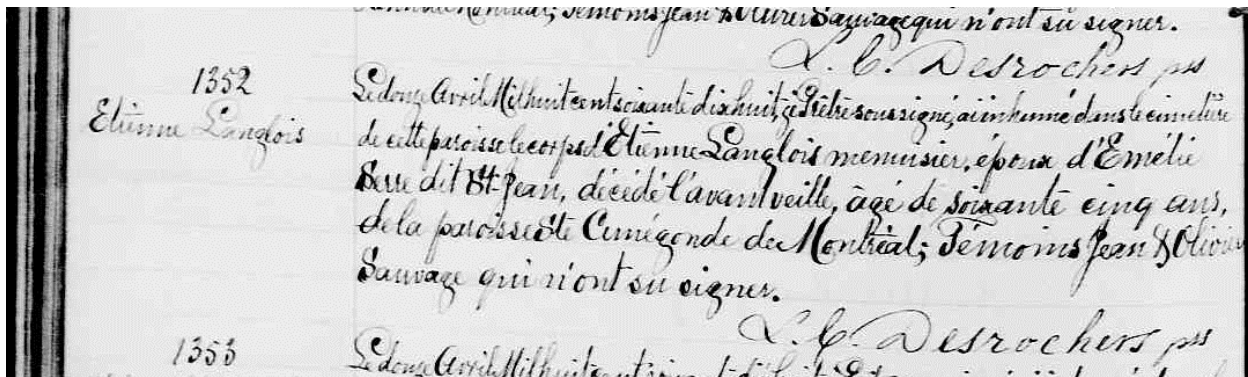 de Montréal; Témoins Jean & Olivier Sauvage qui n'ont su signer.
L. C. Desrochers pss
1352
Le douze Avril Mil huit cent soixante dix huit, je Prêtre soussigné, ai inhumé dans le cimetière
Etienne Langlois
de cette paroisse le corps d'Etienne Langlois menuisier, époux d'Emélie
Serre dit St-Jean, décédé l'avant veille, âgé de soixante cinq ans,
de la paroisse Ste Cunégonde de Montréal; Témoins Jean & Olivier
Sauvage qui n'ont su signer.
L. C. Desrochers pss
1353
Le douze Avril Mil huit cent soixante dix huit